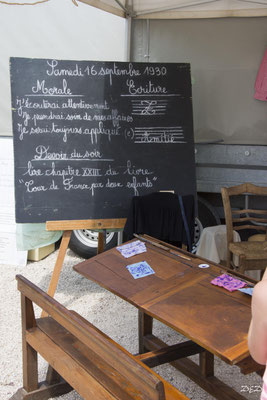 Samedi 16 septembre 1930
Morale
Ecriture
J'écouterai attentivement
Je prendrai soin de mes affaires
Je serai toujours appliqué
Amitié
Devoir du soir
lire chapitre XXIII du livre
"Tour de France par deux enfants"